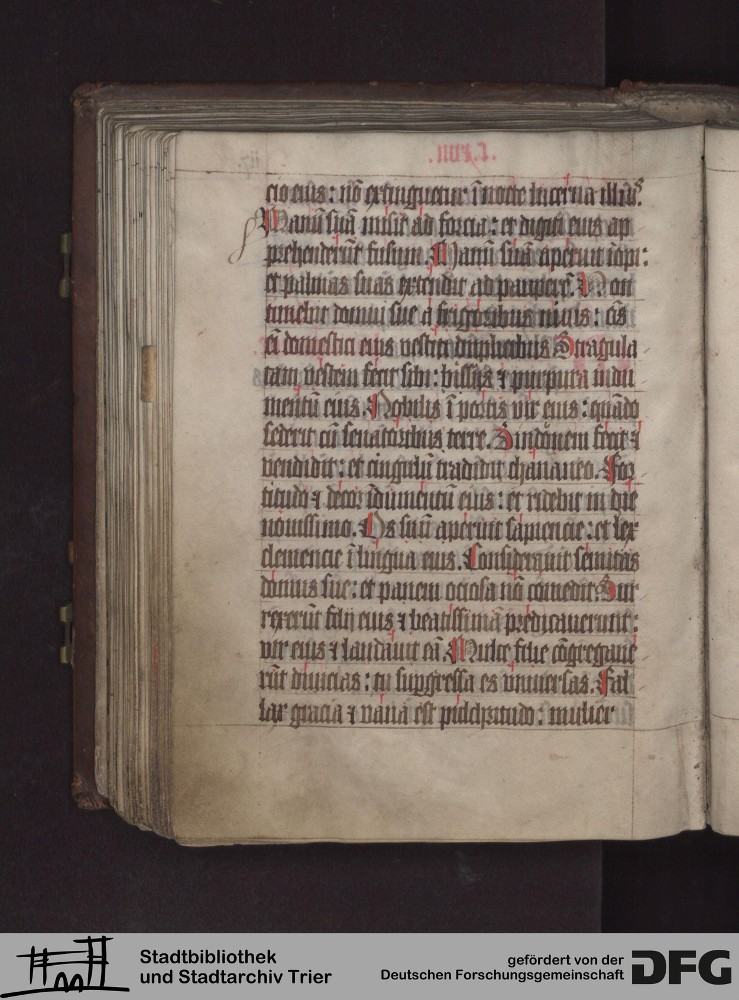 cio eius : nō extinguetur ī nocte lucerna illiꝰ.
Manū suā misit ad forcia : et digiti eius ap
prehenderūt fusum. Manū suā aperuit īopi :
et palmas suas extendit ad pauperē. Non
timebit domui sue a frigoribus niuis : ōs
eī domestici eius vestiti duplicibus Stragula
tam vestem fecit sibi : bissus ⁊ purpura indu
mentū eius. Nobilis ī portis vir eius : quādo
sederit cū senatoribus terre. Sindonem fecit ⁊
vendidit : et cingulū tradidit chananeo. For
titudo ⁊ decor īdumentū eius : et ridebit in die
nouissimo. Os suū aperuit sapiencie : et lex
clemencie ī lingua eius. Considerauit semitas
domus sue : et panem ociosa nō comedit. Sur
rexerūt filij eius ⁊ beatissimā predicauerunt :
vir eius ⁊ laudauit eā. Multe filie cōgregaue
rūt diuicias : tu supgressa es vniuersas. Fal
lax gracia ⁊ vana est pulchritudo : mulier
Stadtbibliothek
und Stadtarchiv Trier
gefördert von der
Deutschen Forschungsgemeinschaft
DFG